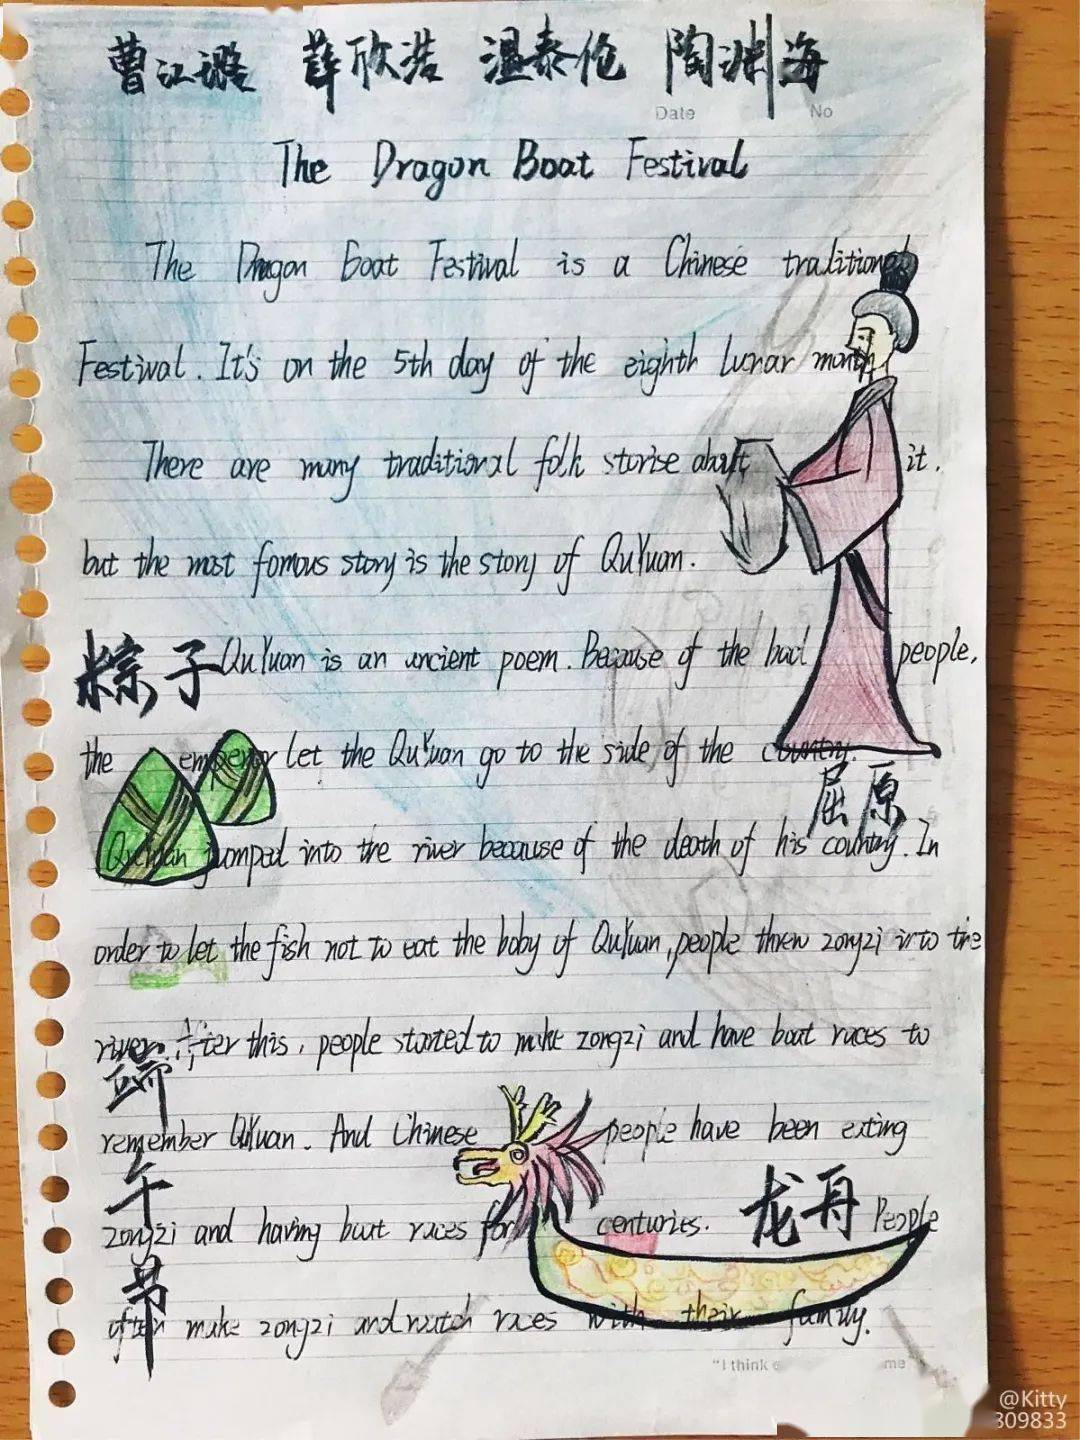 曹江璐 薛欣浩 温泰伦 陶渊海
Date No
The Dragon Boat Festival
The Dragon Boat Festival is a Chinese traditional
Festival. It's on the 5th day of the eighth lunar month
There are many traditional folk storise about it.
but the most famous story is the story of QuYuan.
粽子
QuYuan is an ancient poem. Because of the bad people,
the emperor let the QuYuan go to the side of the country.
屈原
QuYuan jumped into the river because of the death of his country. In
order to let the fish not to eat the boby of QuYuan, people threw zongzi into the
river. After this, people started to make zongzi and have boat races to
端午节
remember QuYuan. And Chinese people have been eating
zongzi and having boat races for centuries. 龙舟 People
often make zongzi and watch races with their family.
"I think me"
@Kitty
309833